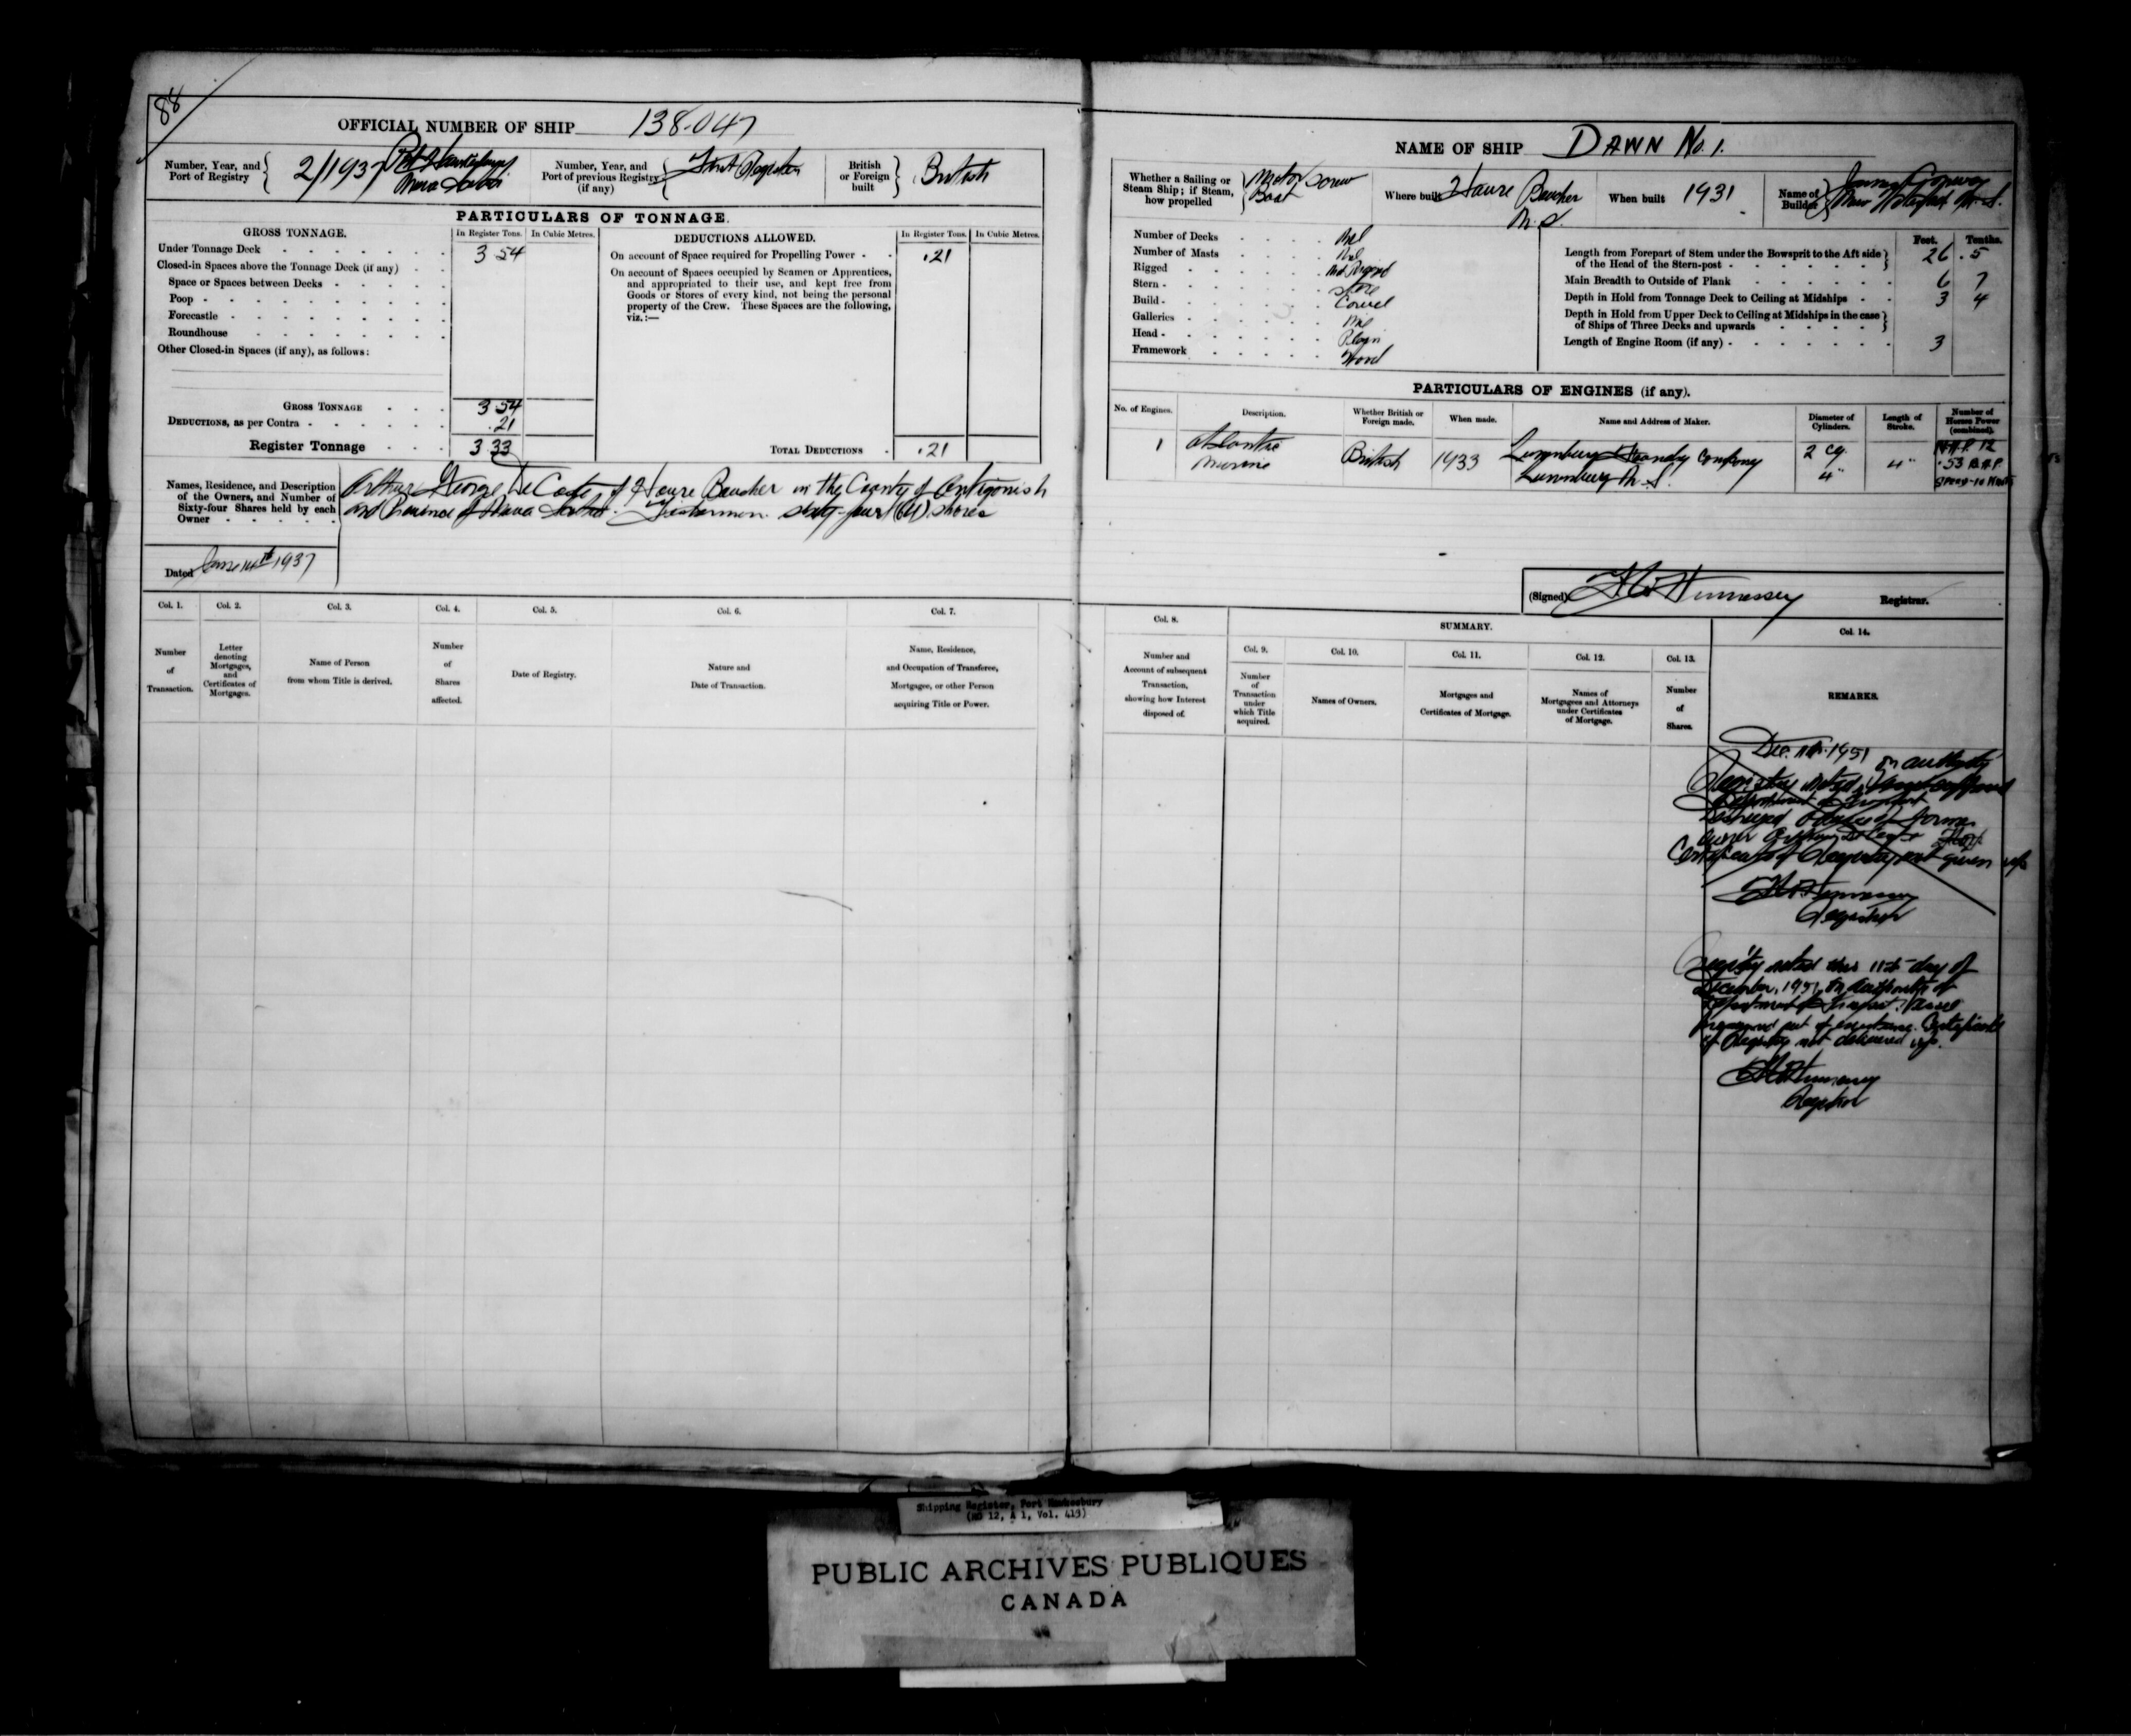 88
OFFICIAL NUMBER OF SHIP 138.047
Number, Year, and Port of Registry 2/1937 Port Hawkesbury Nova Scotia
Number, Year, and Port of previous Registry (if any) First Register
British or Foreign built British
PARTICULARS OF TONNAGE.
GROSS TONNAGE. In Register Tons. In Cubic Metres.
Under Tonnage Deck 3 54
Closed-in Spaces above the Tonnage Deck (if any)
Space or Spaces between Decks
Poop
Forecastle
Roundhouse
Other Closed-in Spaces (if any), as follows:
GROSS TONNAGE 3 54
DEDUCTIONS, as per Contra .21
Register Tonnage 3 33
DEDUCTIONS ALLOWED. In Register Tons. In Cubic Metres.
On account of Space required for Propelling Power .21
On account of Spaces occupied by Seamen or Apprentices,
and appropriated to their use, and kept free from
Goods or Stores of every kind, not being the personal
property of the Crew. These Spaces are the following,
viz.:—
TOTAL DEDUCTIONS .21
Names, Residence, and Description
of the Owners, and Number of
Sixty-four Shares held by each
Owner
Arthur George De Coste of Havre Boucher in the County of Antigonish
and Province of Nova Scotia. Fisherman. sixty-four (64) shares
Dated June 14th 1937
Col. 1. Col. 2. Col. 3. Col. 4. Col. 5. Col. 6. Col. 7.
Number of Transaction.
Letter denoting Mortgages, and Certificates of Mortgages.
Name of Person from whom Title is derived.
Number of Shares affected.
Date of Registry.
Nature and Date of Transaction.
Name, Residence, and Occupation of Transferee, Mortgagee, or other Person acquiring Title or Power.
NAME OF SHIP DAWN No. 1.
Whether a Sailing or Steam Ship; if Steam, how propelled Motor Screw Boat
Where built Havre Boucher N.S.
When built 1931
Name of Builder
Number of Decks Nil
Number of Masts Nil
Rigged Not Rigged
Stern
Build Carvel
Galleries Nil
Head Plain
Framework Wood
Feet. Tenths.
Length from Forepart of Stem under the Bowsprit to the Aft side of the Head of the Stern-post 26 .5
Main Breadth to Outside of Plank 6 7
Depth in Hold from Tonnage Deck to Ceiling at Midships 3 4
Depth in Hold from Upper Deck to Ceiling at Midships in the case of Ships of Three Decks and upwards
Length of Engine Room (if any) 3
PARTICULARS OF ENGINES (if any).
No. of Engines. Description. Whether British or Foreign made. When made. Name and Address of Maker. Diameter of Cylinders. Length of Stroke. Number of Horses Power (combined).
1 Atlantic Marine British 1933 Lunenburg Foundry Company Lunenburg N.S. 2 Cy. 4" 4" N.H.P. 12
.53 B.H.P.
Speed-10 Knots
(Signed) Hennessey Registrar.
Col. 8. SUMMARY. Col. 14.
Col. 9. Col. 10. Col. 11. Col. 12. Col. 13.
Number and Account of subsequent Transaction, showing how Interest disposed of.
Number of Transaction under which Title acquired.
Names of Owners.
Mortgages and Certificates of Mortgage.
Names of Mortgagees and Attorneys under Certificates of Mortgage.
Number of Shares.
REMARKS.
Dec. 11th 1951
on authority
Department of Transport
Certificate of Registry not given up
Hennessey
Registrar
Registry noted this 11th day of
December, 1951, on authority of
Department of Transport. Vessel
out of existence. Certificate
of Registry not delivered up.
Hennessey
Registrar
Shipping Register, Port Hawkesbury
(RG 12, A 1, Vol. 419)
PUBLIC ARCHIVES PUBLIQUES
CANADA